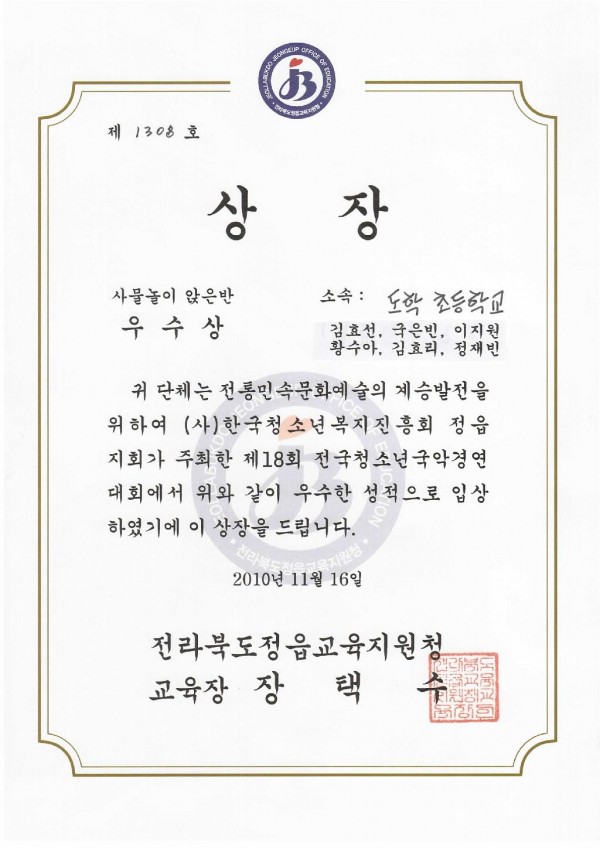 JEOLLABUKDO JEONGEUP OFFICE OF EDUCATION
전라북도정읍교육지원청
제 1308 호
상 장
사물놀이 앉은반
우 수 상
소속 : 도학 초등학교
김효선, 국은빈, 이지원
황수아, 김효리, 정재빈
귀 단체는 전통민속문화예술의 계승발전을
위하여 (사)한국청소년복지진흥회 정읍
지회가 주최한 제18회 전국청소년국악경연
대회에서 위와 같이 우수한 성적으로 입상
하였기에 이 상장을 드립니다.
2010년 11월 16일
전라북도정읍교육지원청
교육장 장 택 수